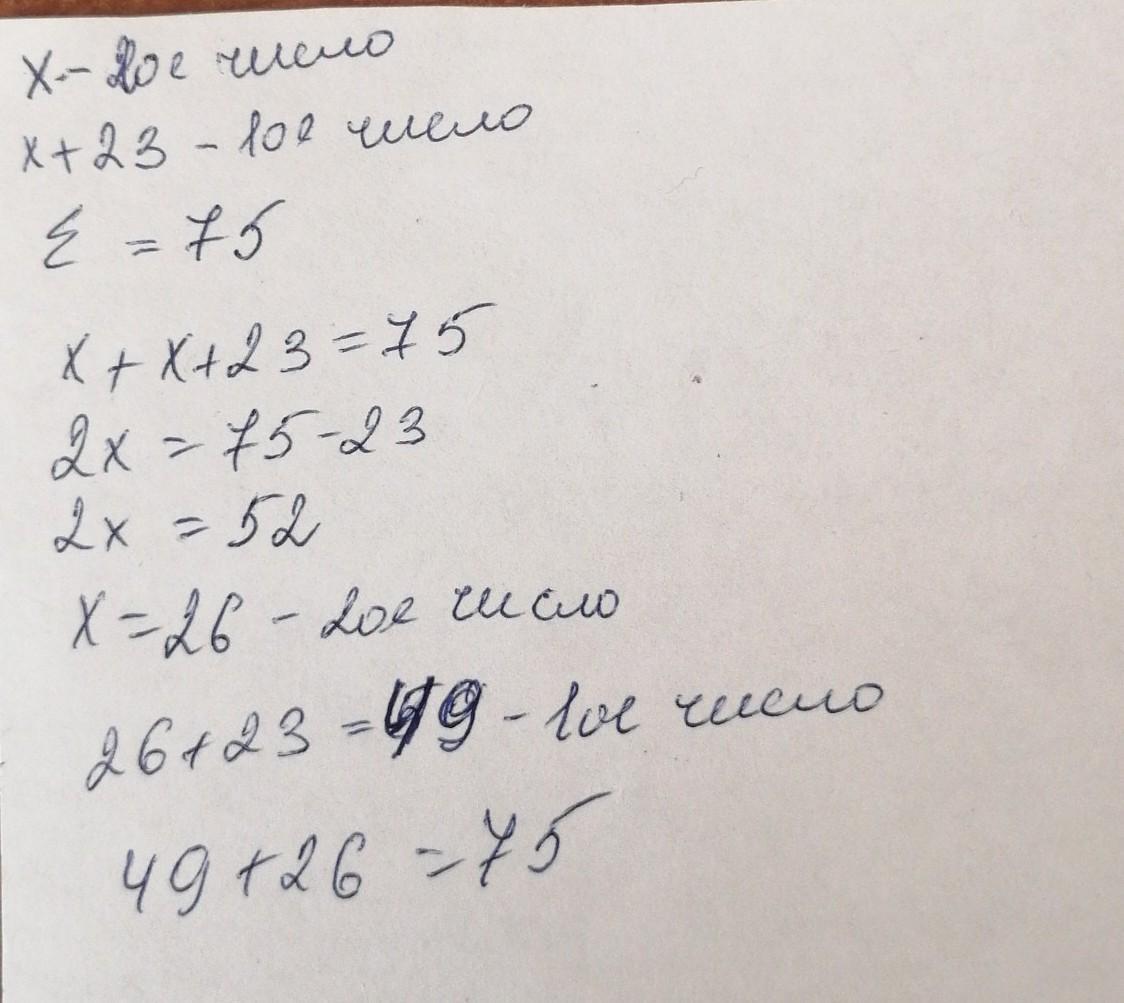 x - 2ое число
x+23 - 1ое число
Σ = 75
x + x+23 = 75
2x = 75-23
2x = 52
x = 26 - 2ое число
26+23 = 49 - 1ое число
49+26 = 75